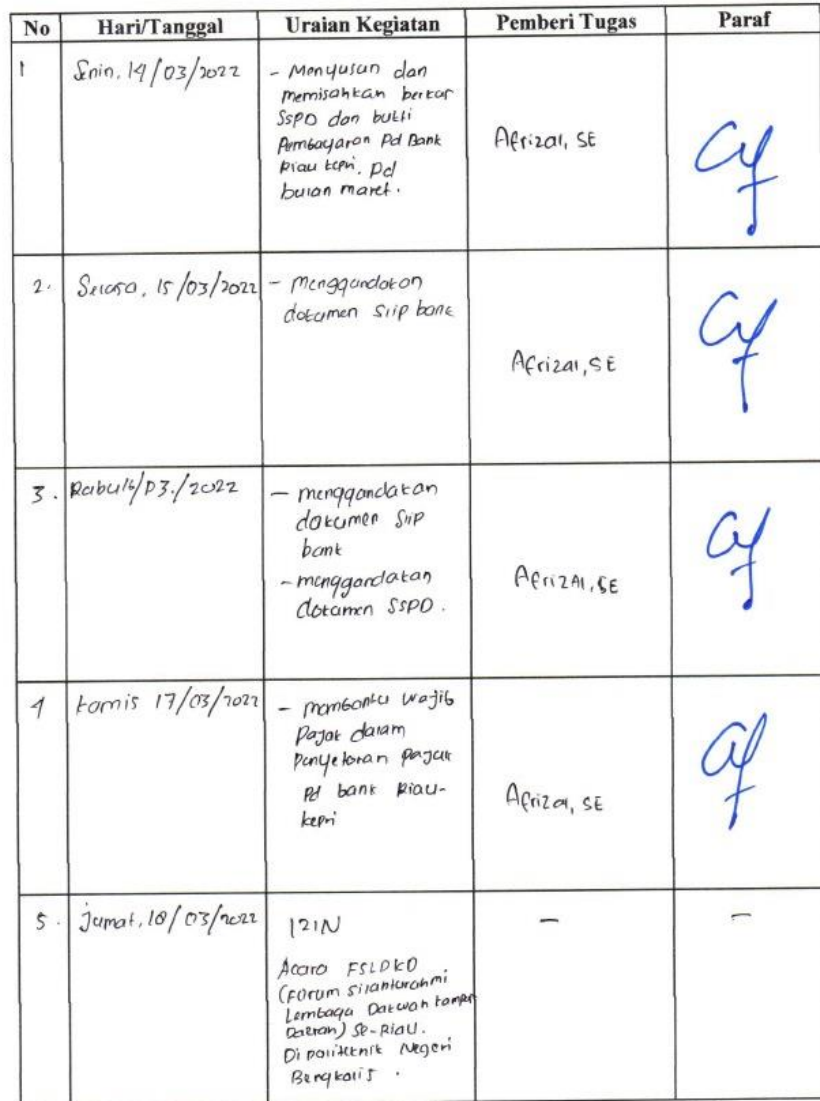 No Hari/Tanggal Uraian Kegiatan Pemberi Tugas Paraf
1 Senin, 14/03/2022
- Menyusun dan
memisahkan berkas
SSPD dan bukti
Pembayaran Pd Bank
Riau kepri. Pd
bulan maret.
Afrizal, SE
2. Selasa, 15/03/2022
- menggandakan
dokumen Slip bank
Afrizal, SE
3. Rabu 16/03./2022
- menggandakan
dokumen Slip
bank
- menggandakan
dokumen SSPD.
AfrizAl, SE
4 kamis 17/03/2022
- membantu wajib
Pajak dalam
Penyetoran Pajak
Pd bank Riau-
kepri
Afrizal, SE
5. Jumat, 18/03/2022
IZIN
Acara FSLDKD
(Forum silahturahmi
Lembaga Dakwah kampus
Daerah) Se-Riau.
Di politeknik Negeri
Bengkalis.
-
-